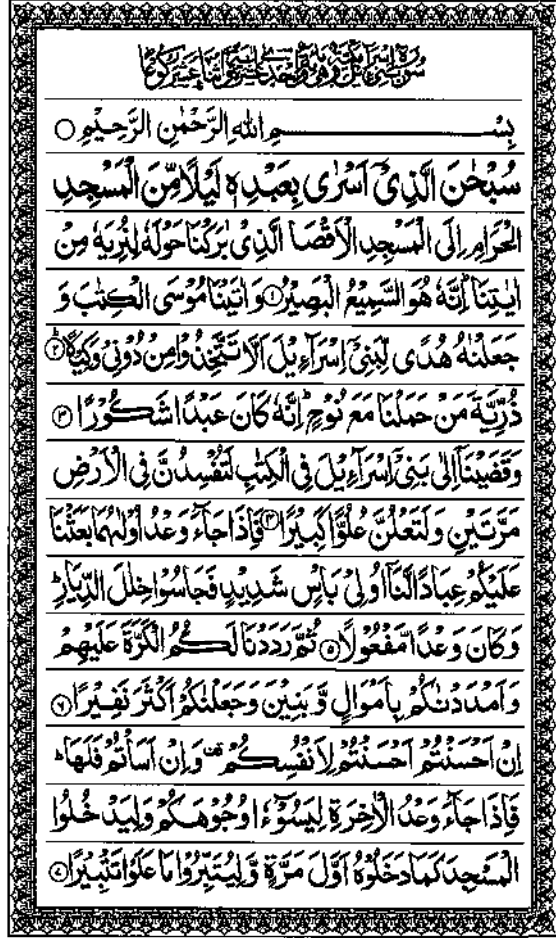 سورة بنی اسرآءیل مکیة وهی مائة واحدی عشرة اٰیة واثنا عشر رکوعا
بِسْمِ اللهِ الرَّحْمٰنِ الرَّحِيْمِ ○
سُبْحٰنَ الَّذِيْٓ اَسْرٰى بِعَبْدِهٖ لَيْلًا مِّنَ الْمَسْجِدِ
الْحَرَامِ اِلَى الْمَسْجِدِ الْاَقْصَا الَّذِيْ بٰرَكْنَا حَوْلَهٗ لِنُرِيَهٗ مِنْ
اٰيٰتِنَا ؕ اِنَّهٗ هُوَ السَّمِيْعُ الْبَصِيْرُ ۝۱ وَ اٰتَيْنَا مُوْسَى الْكِتٰبَ وَ
جَعَلْنٰهُ هُدًى لِّبَنِيْٓ اِسْرَآءِيْلَ اَلَّا تَتَّخِذُوْا مِنْ دُوْنِيْ وَكِيْلًا ؕ۝۲
ذُرِّيَّةَ مَنْ حَمَلْنَا مَعَ نُوْحٍ ؕ اِنَّهٗ كَانَ عَبْدًا شَكُوْرًا ۝۳
وَ قَضَيْنَآ اِلٰى بَنِيْٓ اِسْرَآءِيْلَ فِي الْكِتٰبِ لَتُفْسِدُنَّ فِي الْاَرْضِ
مَرَّتَيْنِ وَ لَتَعْلُنَّ عُلُوًّا كَبِيْرًا ۝۴ فَاِذَا جَآءَ وَعْدُ اُوْلٰىهُمَا بَعَثْنَا
عَلَيْكُمْ عِبَادًا لَّنَآ اُولِيْ بَاْسٍ شَدِيْدٍ فَجَاسُوْا خِلٰلَ الدِّيَارِ ؕ
وَ كَانَ وَعْدًا مَّفْعُوْلًا ۝۵ ثُمَّ رَدَدْنَا لَكُمُ الْكَرَّةَ عَلَيْهِمْ
وَ اَمْدَدْنٰكُمْ بِاَمْوَالٍ وَّ بَنِيْنَ وَ جَعَلْنٰكُمْ اَكْثَرَ نَفِيْرًا ۝۶
اِنْ اَحْسَنْتُمْ اَحْسَنْتُمْ لِاَنْفُسِكُمْ وَ اِنْ اَسَاْتُمْ فَلَهَا ؕ
فَاِذَا جَآءَ وَعْدُ الْاٰخِرَةِ لِيَسُوْٓءٗا وُجُوْهَكُمْ وَ لِيَدْخُلُوا
الْمَسْجِدَ كَمَا دَخَلُوْهُ اَوَّلَ مَرَّةٍ وَّ لِيُتَبِّرُوْا مَا عَلَوْا تَتْبِيْرًا ۝۷